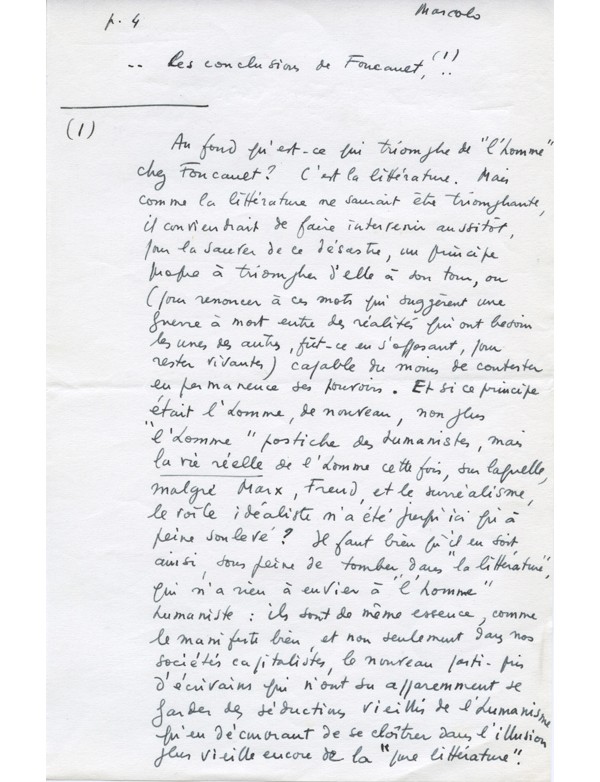 p. 4
Mascolo
.. Les conclusions de Foucault, (1) ..
(1)
Au fond qu'est-ce qui triomphe de "l'homme"
chez Foucault ? C'est la littérature. Mais
comme la littérature ne saurait être triomphante,
il conviendrait de faire intervenir aussitôt,
pour la sauver de ce désastre, un principe
propre à triompher d'elle à son tour, ou
(pour renoncer à ces mots qui suggèrent une
guerre à mort entre des réalités qui ont besoin
les unes des autres, fût-ce en s'opposant, pour
rester vivantes) capable du moins de contester
en permanence ses pouvoirs. Et si ce principe
était l'homme, de nouveau, non plus
"l'homme" postiche des humanistes, mais
la vie réelle de l'homme cette fois, sur laquelle,
malgré Marx, Freud, et le surréalisme,
le voile idéaliste n'a été jusqu'ici qu'à
peine soulevé ? Il faut bien qu'il en soit
ainsi, sous peine de tomber dans "la littérature",
qui n'a rien à envier à "l'homme"
humaniste : ils sont de même essence, comme
le manifeste bien, et non seulement dans nos
sociétés capitalistes, le nouveau parti-pris
d'écrivains qui n'ont su apparemment se
garder des séductions vieillies de l'humanisme
qu'en découvrant de se cloîtrer dans l'illusion
plus vieille encore de la "pure littérature".